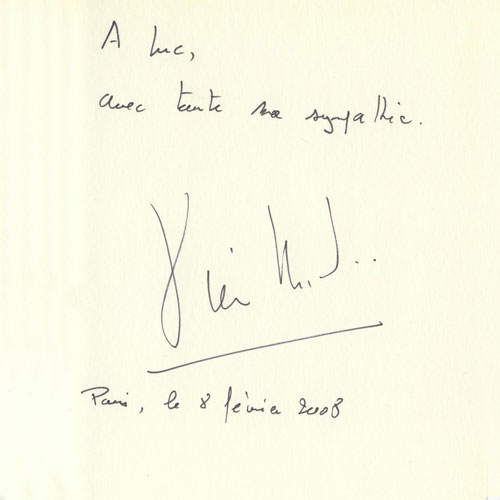 A Luc,
avec toute ma sympathie.
Paris, le 8 février 2008